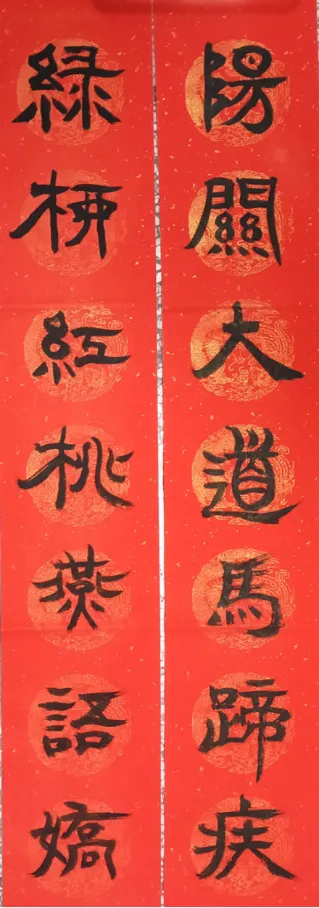 陽關大道馬蹄疾
緑桺紅桃燕語嬌